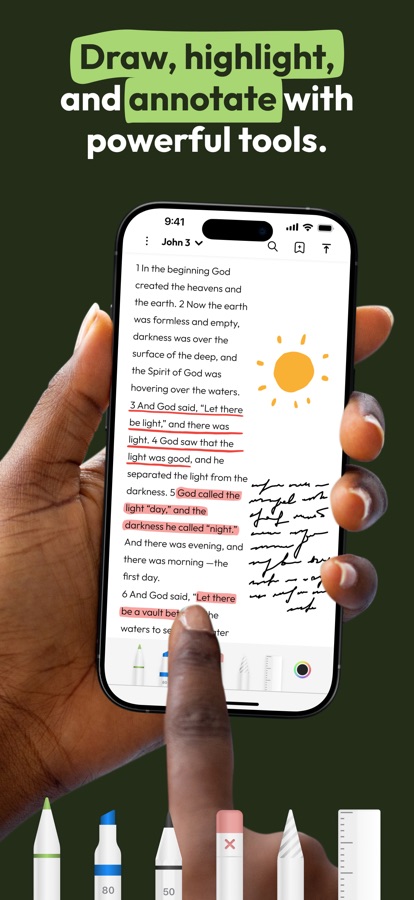 Draw, highlight,
and annotate with
powerful tools.
9:41
John 3
1 In the beginning God
created the heavens and
the earth. 2 Now the earth
was formless and empty,
darkness was over the
surface of the deep, and
the Spirit of God was
hovering over the waters.
3 And God said, “Let there
be light,” and there was
light. 4 God saw that the
light was good, and he
separated the light from the
darkness. 5 God called the
light “day,” and the
darkness he called “night.”
And there was evening, and
there was morning —the
first day.
6 And God said, “Let there
be a vault
waters to
80 50